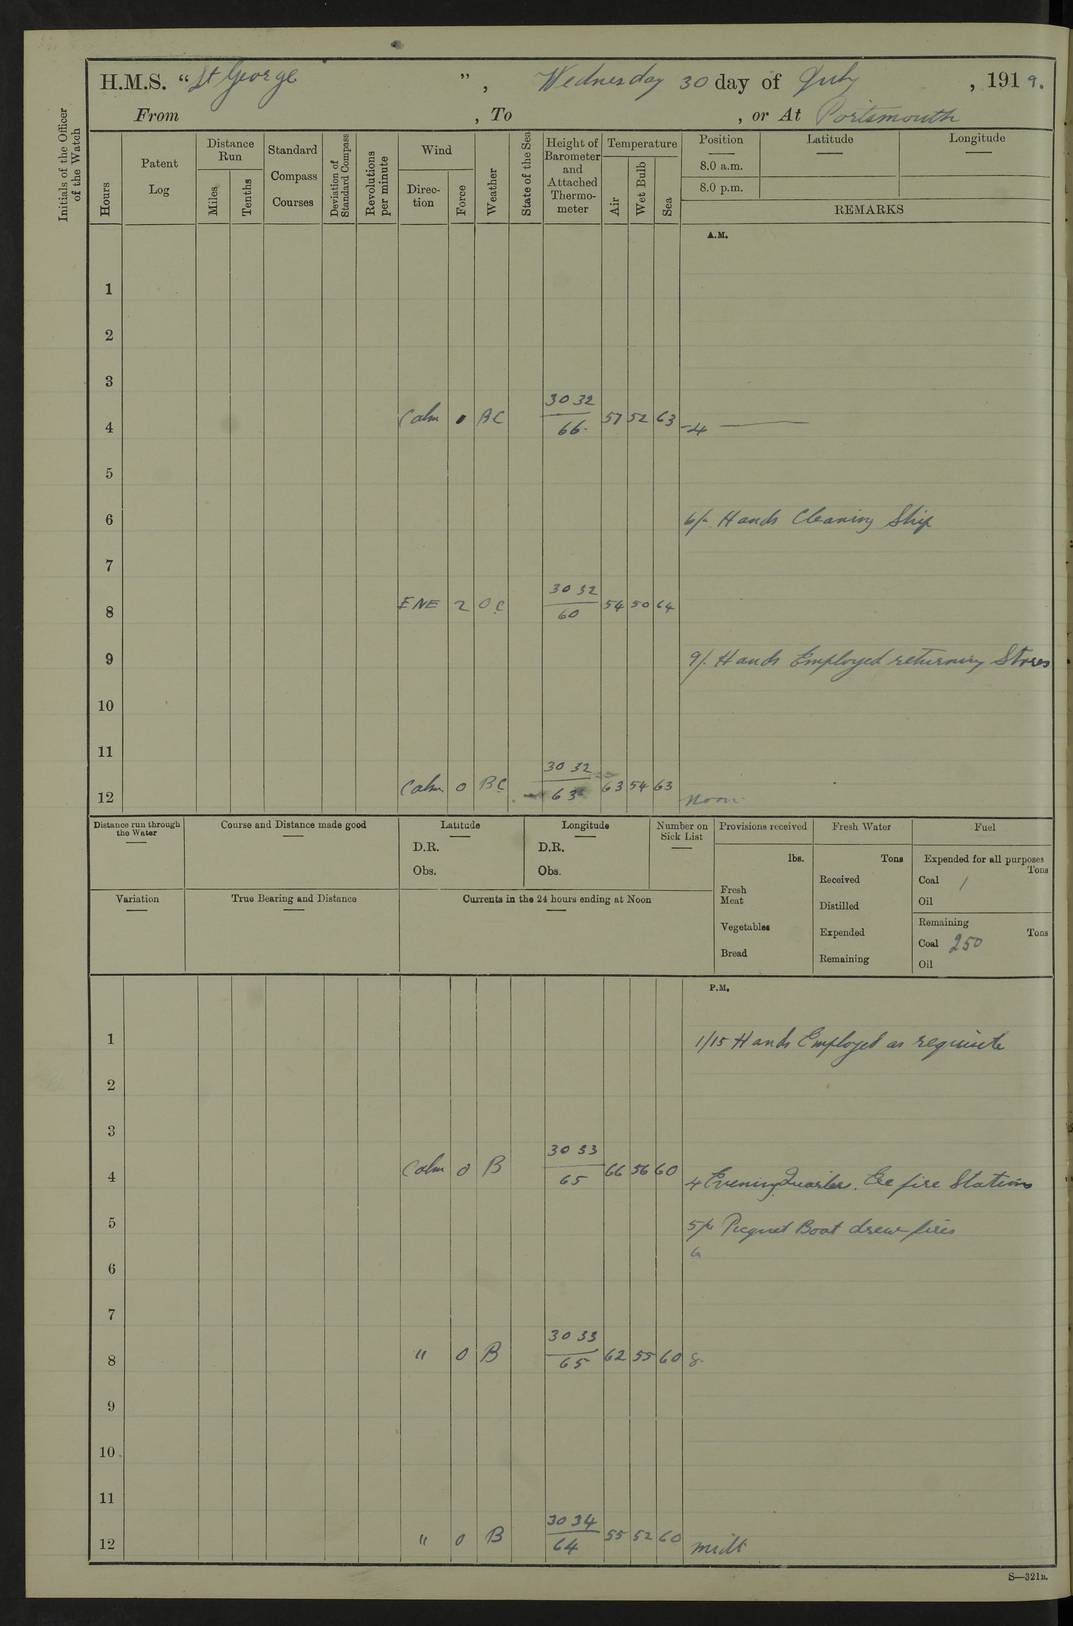 H.M.S. "St George", Wednesday 30 day of July, 1919.
From , To , or At Portsmouth
Initials of the Officer of the Watch
Hours
Patent Log
Distance Run
Miles
Tenths
Standard Compass Courses
Deviation of Standard Compass
Revolutions per minute
Wind
Direction
Force
Weather
State of the Sea
Height of Barometer and Attached Thermometer
Temperature
Air
Wet Bulb
Sea
Position
Latitude
Longitude
8.0 a.m.
8.0 p.m.
REMARKS
A.M.
1
2
3
4 Calm 0 BC 30 32 / 66 57 52 63 4
5
6 6/- Hands Cleaning Ship
7
8 ENE 2 OC 30 32 / 60 54 50 64
9 9/- Hands Employed returning Stores
10
11
12 Calm 0 BC 30 32 / 63 63 54 63 Noon
Distance run through the Water
Course and Distance made good
Latitude
D.R.
Obs.
Longitude
D.R.
Obs.
Number on Sick List
Provisions received
lbs.
Fresh Meat
Vegetables
Bread
Fresh Water
Tons
Received
Distilled
Expended
Remaining
Fuel
Expended for all purposes
Tons
Coal 1
Oil
Remaining
Tons
Coal 250
Oil
Variation
True Bearing and Distance
Currents in the 24 hours ending at Noon
P.M.
1 1/15 Hands Employed as requisite
2
3
4 Calm 0 B 30 33 / 65 66 56 60 4 Evening Quarters. fire Stations
5 Picquet Boat drew fires
6 6
7
8 " 0 B 30 33 / 65 62 55 60 8
9
10
11
12 " 0 B 30 34 / 64 55 52 60 Midt
S—321B.